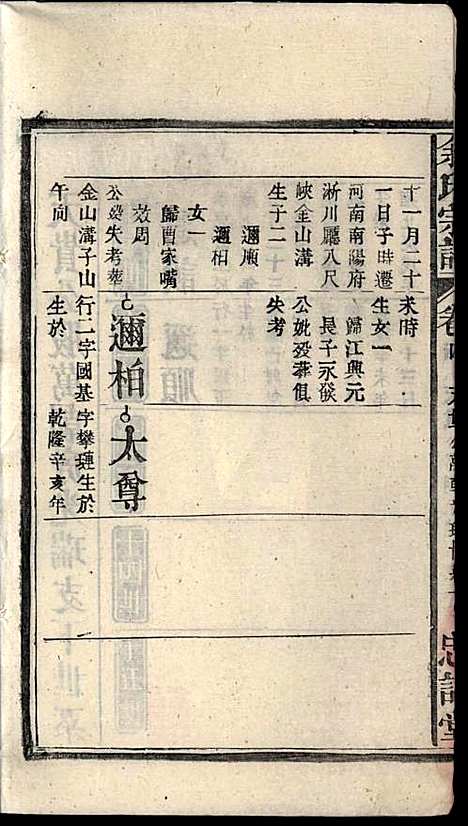 余氏宗譜
卷
忠
堂
十一月二十
一日子時遷
河南南陽府
淅川廳八尺
峽金山溝
生子二
邇順
邇柏
女一
歸曹家嘴
效周
公歿失考葬
金山溝子山
午向
未時
生女一
歸江興元
長子永發
公妣歿葬俱
失考
邇柏
行二字國基
生於
太尊
字攀璉生於
乾隆辛亥年